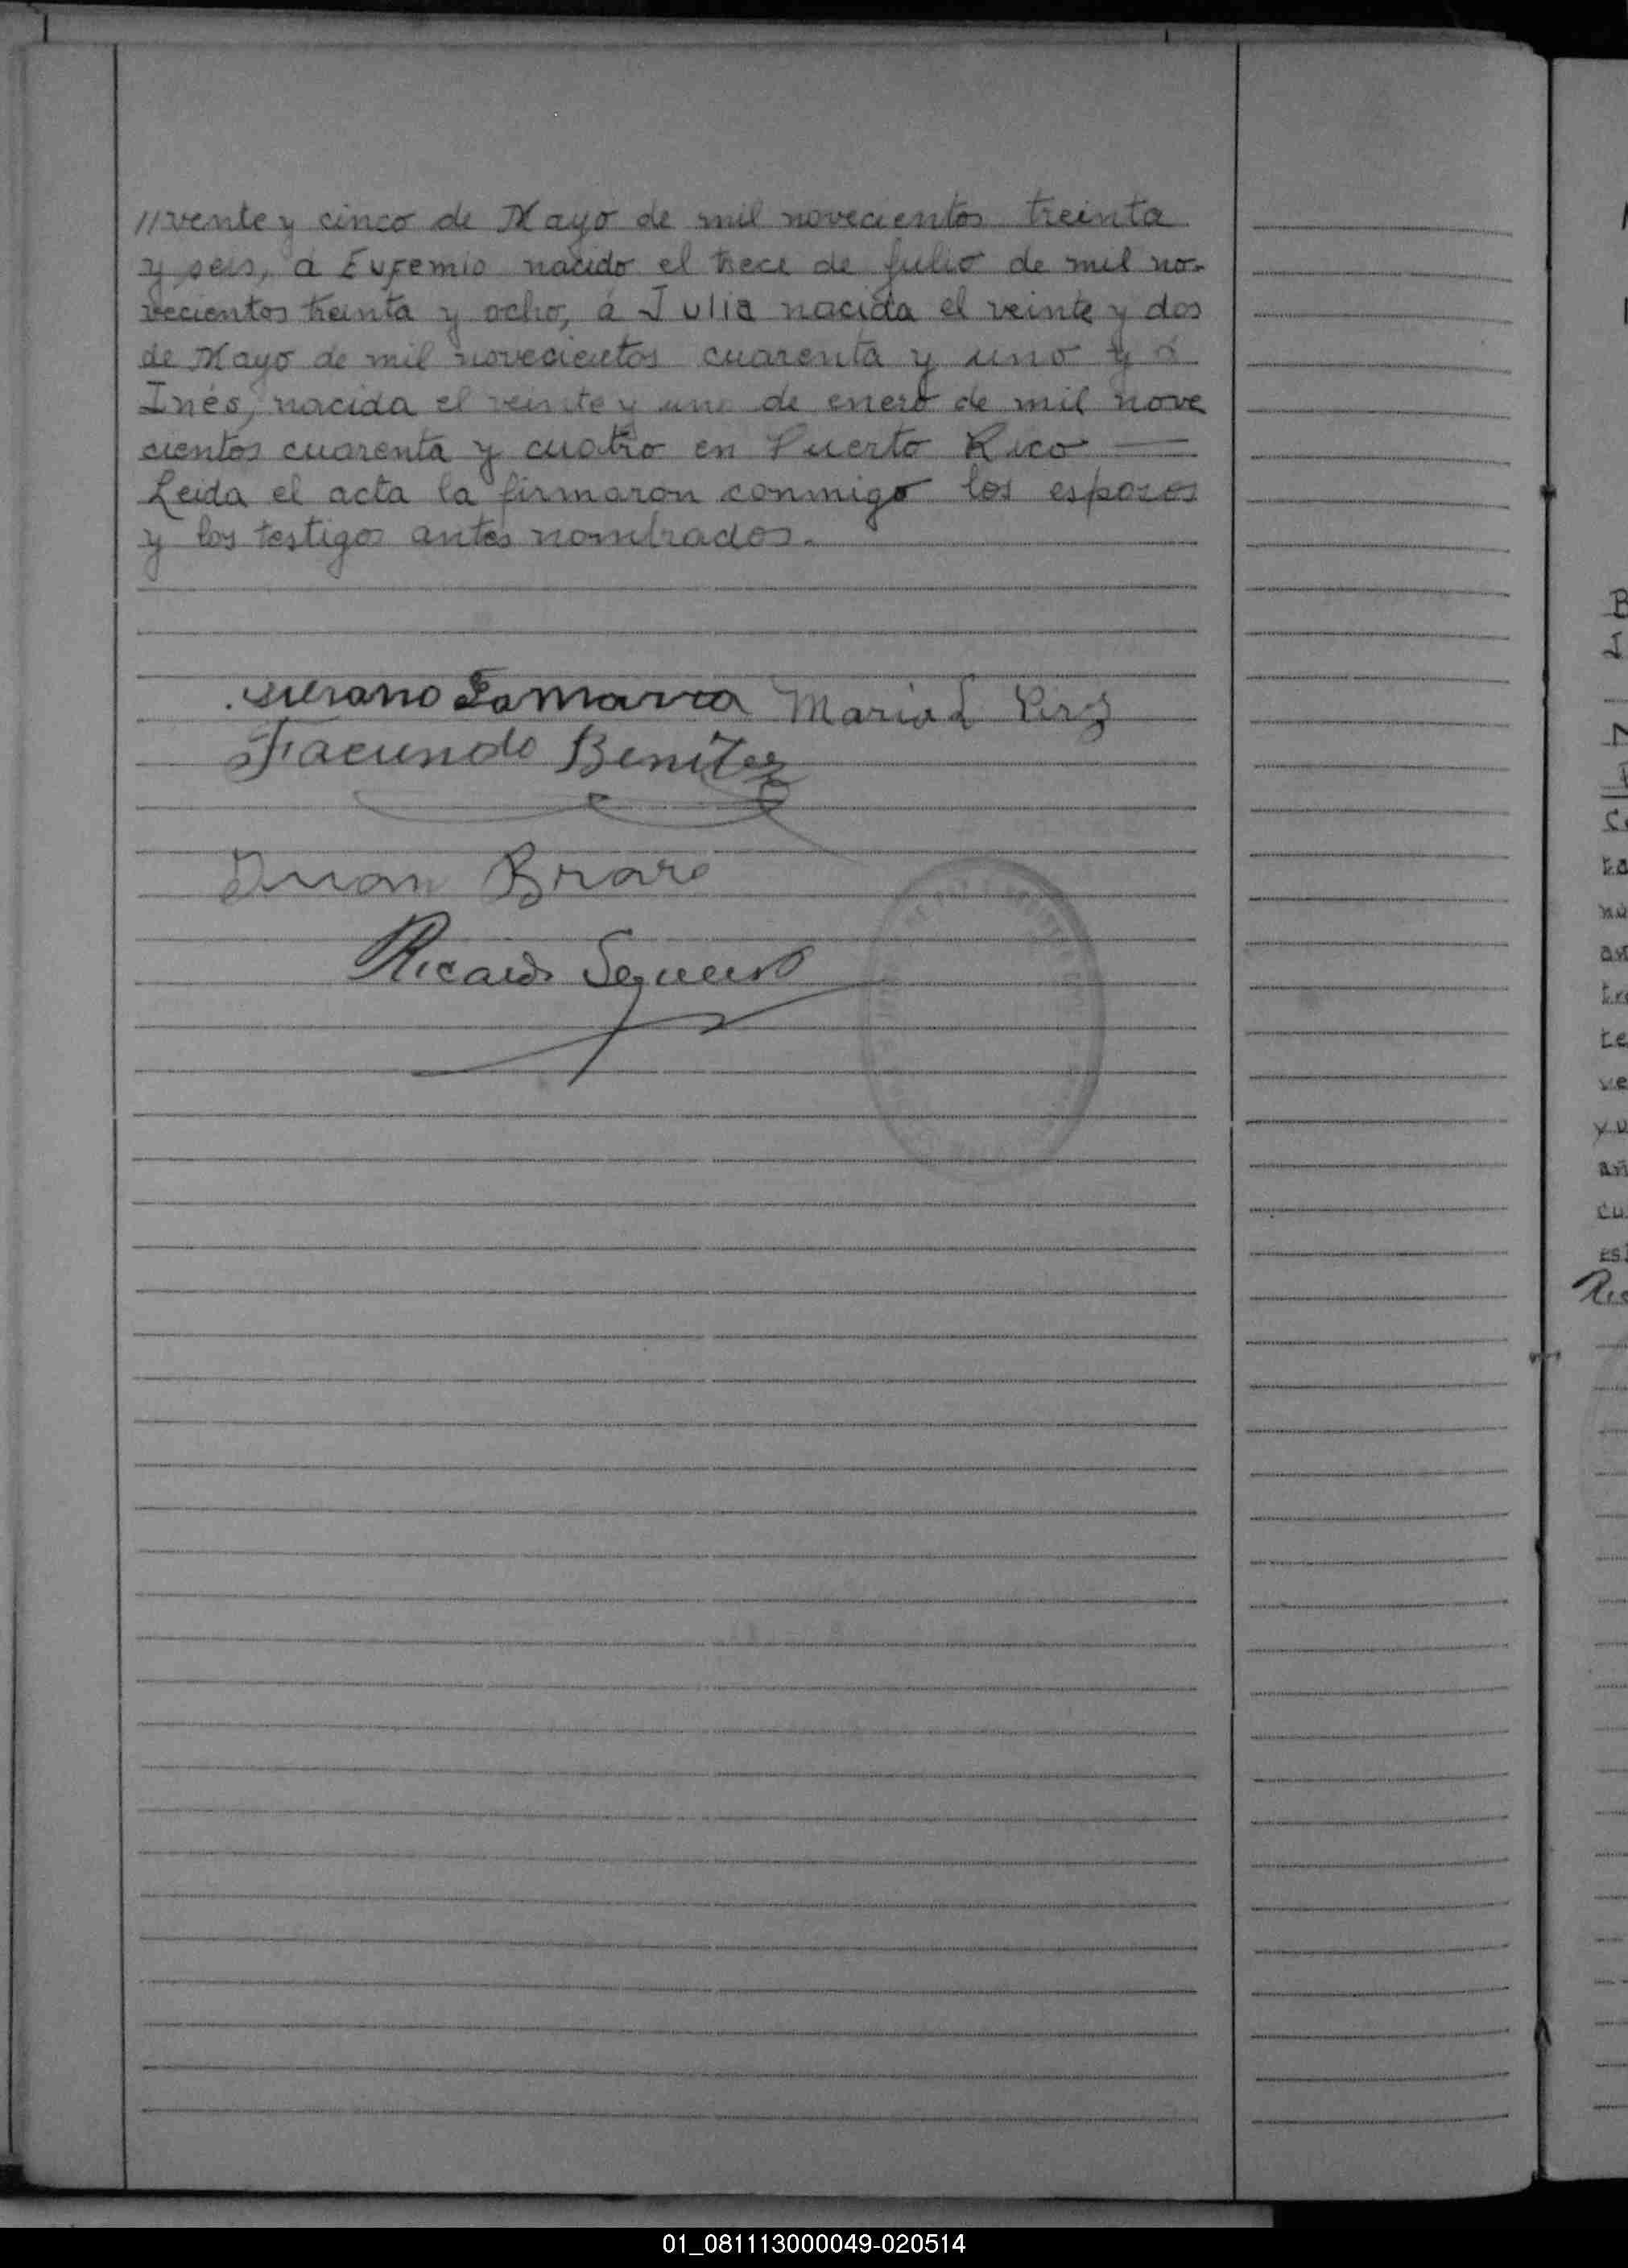 //vente y cinco de Mayo de mil novecientos treinta
y seis, á Eufemio nacido el trece de Julio de mil no-
vecientos treinta y ocho, á Julia nacida el veinte y dos
de Mayo de mil novecientos cuarenta y uno y á
Inés, nacida el veinte y uno de enero de mil nove
cientos cuarenta y cuatro en Puerto Rico —
Leida el acta la firmaron conmigo los esposos
y los testigos antes nombrados.
Maria
Facundo Benitez
Juan
Ricardo
01_081113000049-020514